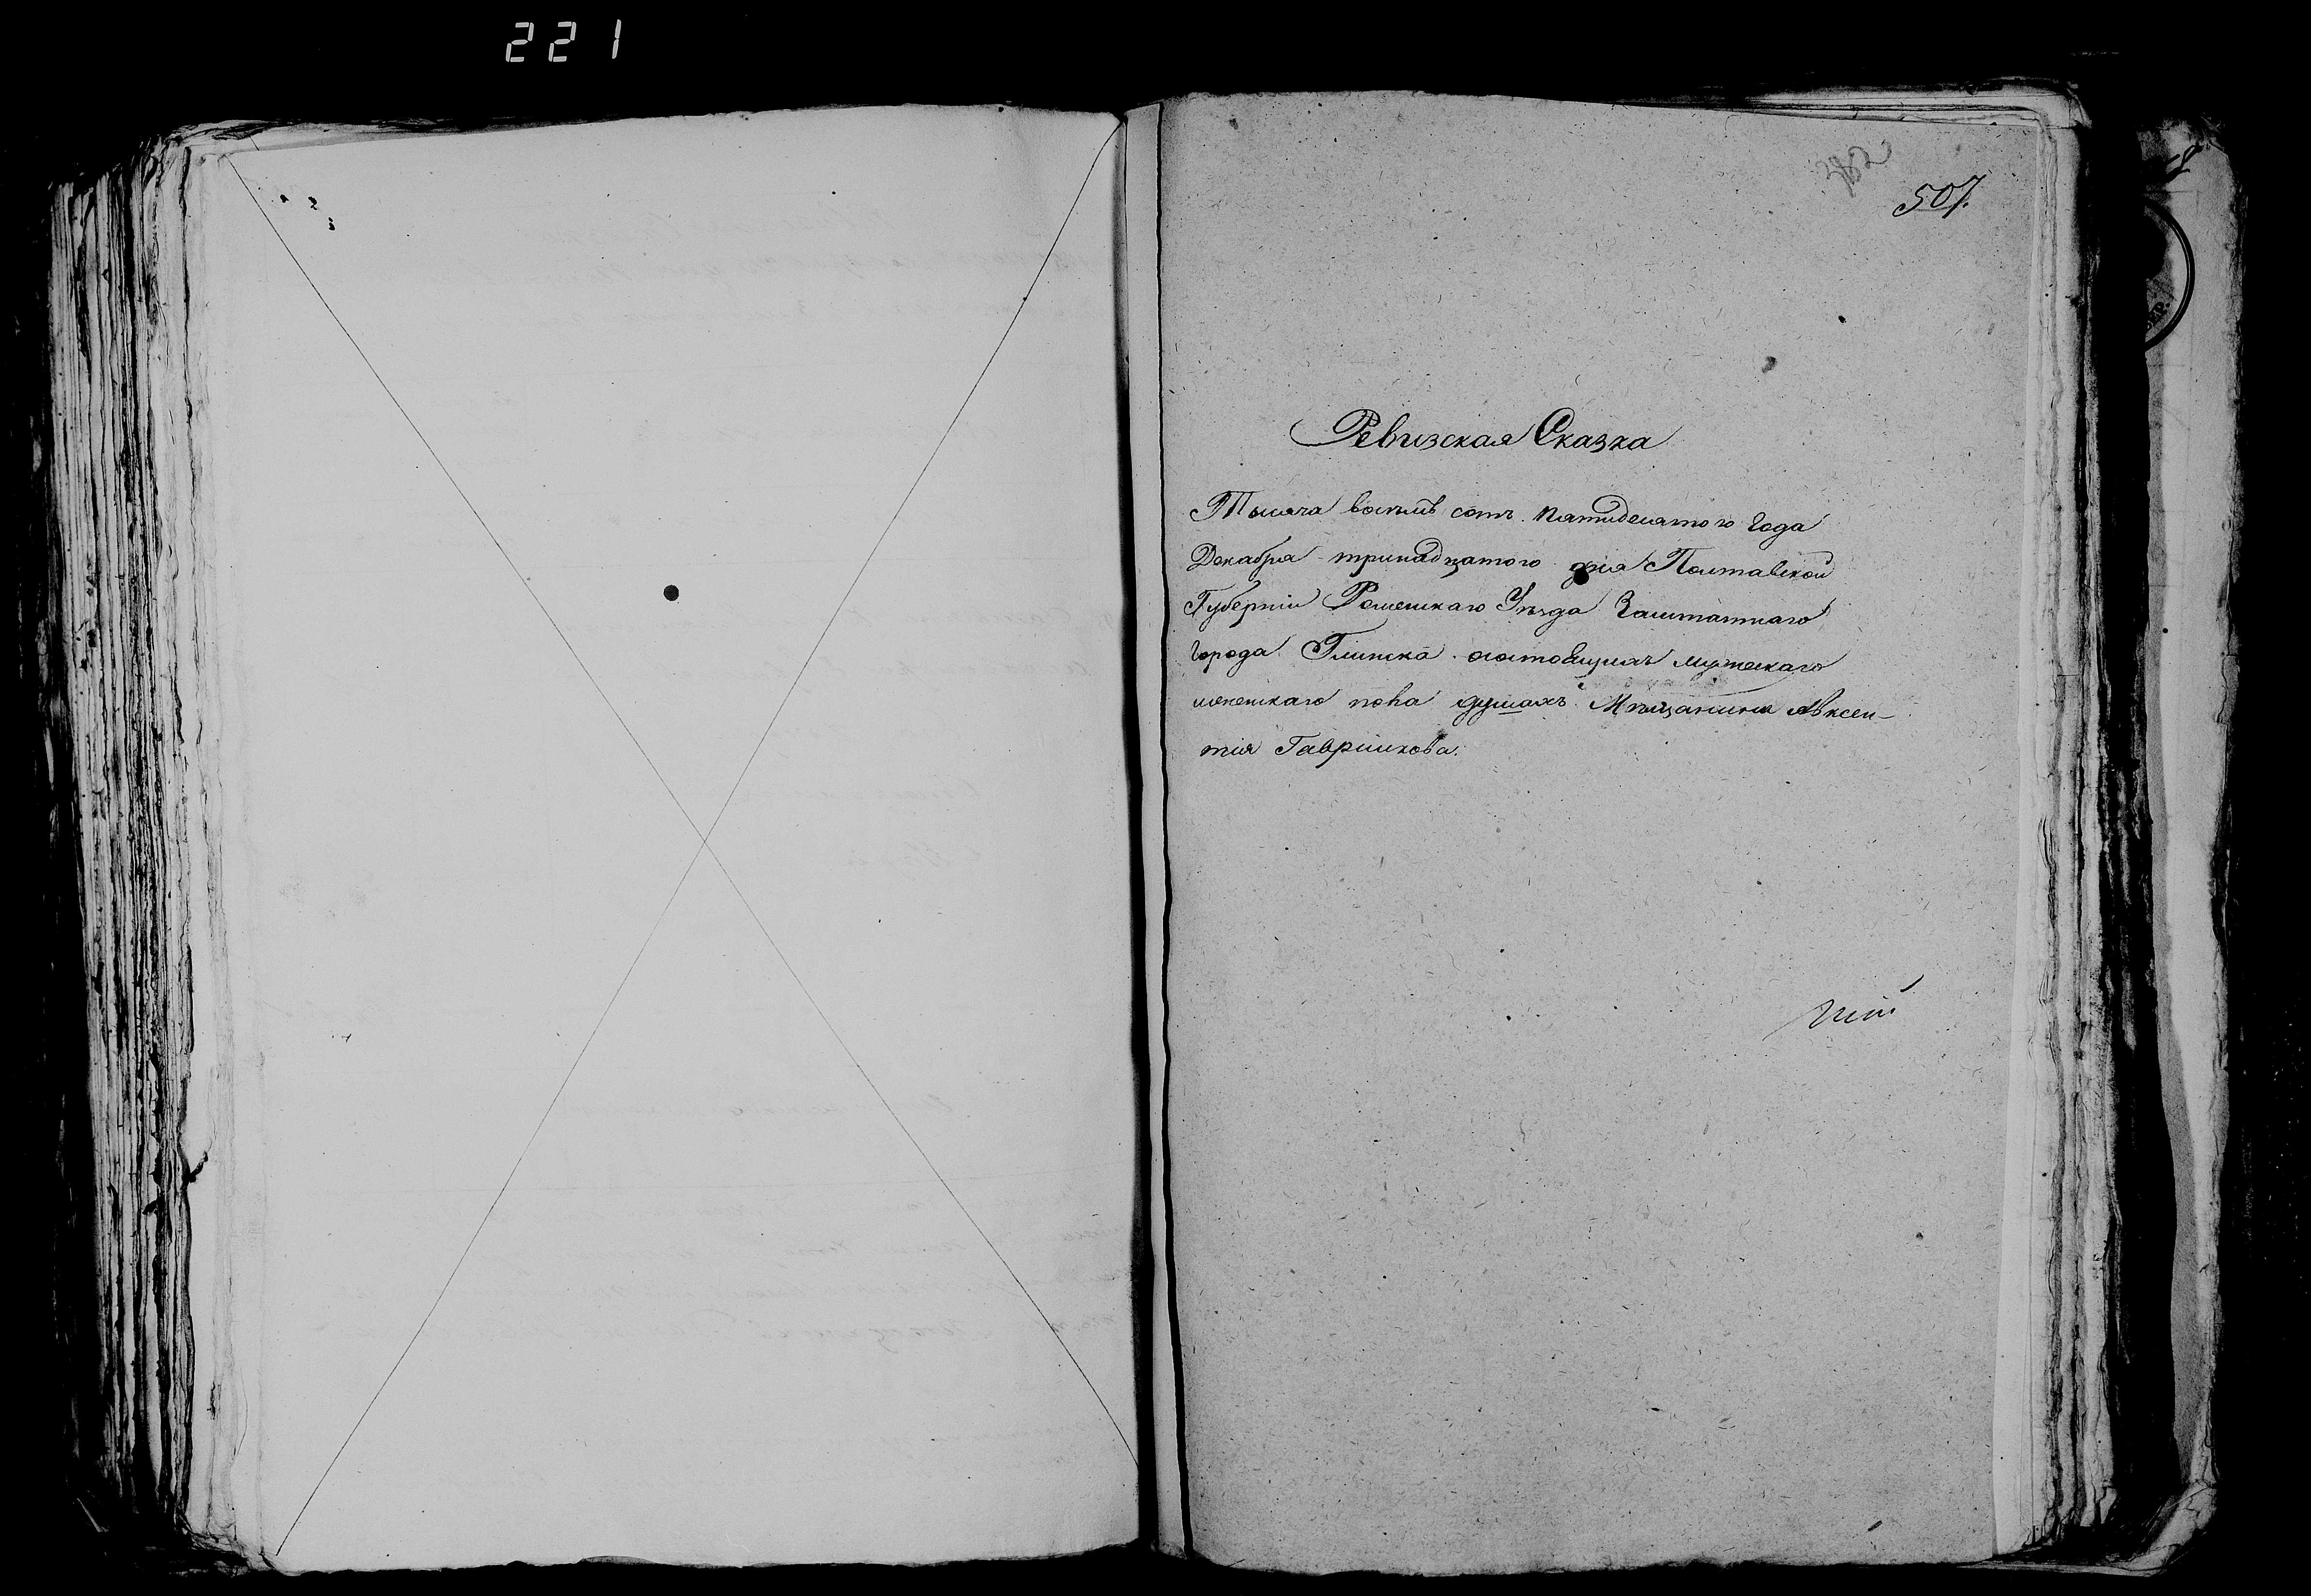 221
382
507.
Ревизская Сказка
Тысяча восемь сотъ пятидесятого Года
Декабря тринадцатого дня Полтавской
Губерніи Роменскаго Уѣзда Заштатнаго
Города Глинска состоящихъ мужескаго
женскаго пола душахъ Мѣщанина Авксен-
тія Гаврилкова.